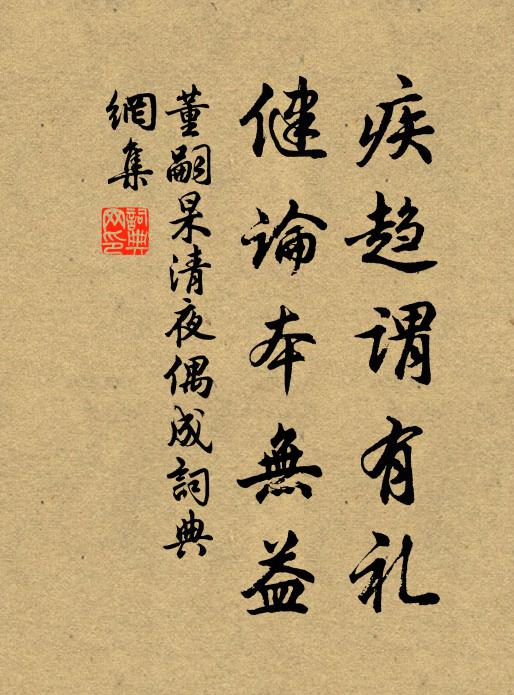 疾趋謂有礼
健論本無益
董嗣杲清夜偶成詞典
網集
詞典
网印